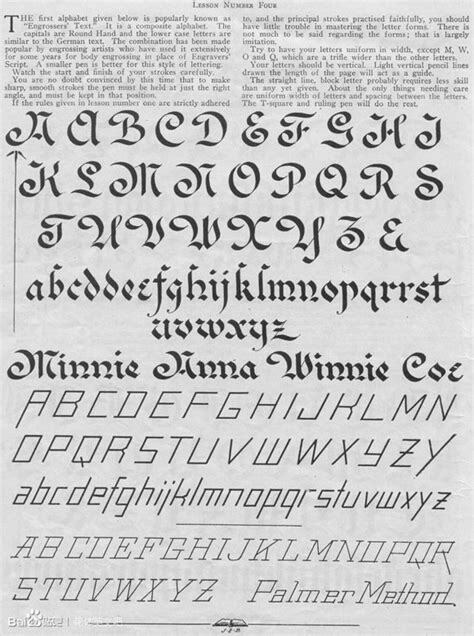 LESSON NUMBER FOUR
THE first alphabet given below is popularly known as
"Engrossers' Text." It is a composite alphabet. The
capitals are Round Hand and the lower case letters are
similar to the German text. The combination has been made
popular by engrossing artists who have used it extensively
for some years for body engrossing in place of Engravers'
Script. A smaller pen is better for this style of lettering.
Watch the start and finish of your strokes carefully.
You are no doubt convinced by this time that to make
sharp, smooth strokes the pen must be held at just the right
angle, and must be kept in that position.
If the rules given in lesson number one are strictly adhered
to, and the principal strokes practised faithfully, you should
have little trouble in mastering the letter forms. There is not
much to be said regarding the forms; that is largely
imitation.
Try to have your letters uniform in width, except M, W,
O and Q, which are a trifle wider than the other letters.
Your letters should be vertical. Light vertical pencil lines
drawn the length of the page will act as a guide.
The straight line, block letter probably requires less skill
than any yet given. About the only things needing care
are uniform width of letters and spacing between the letters.
The T-square and ruling pen will do the rest.
A B C D E F G H I
K L M N O P Q R S
T U V W X Y Z &
abcddefghijklmnopqrrst
uvwxyz
Minnie Anna Winnie Coe
ABCDEFGHIJKLMN
OPQRSTUVWXYZY
abcdefghijklmnopqrstuvwxyz
ABCDEFGHIJKLMNOPQR
STUVWXYZ Palmer Method.